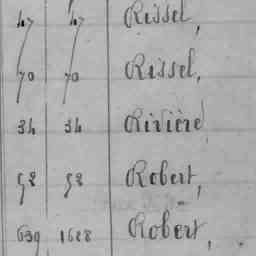 47 47 Rissel,
70 70 Rissel,
34 34 Rivière
58 58 Robert,
639 1688 Robert,